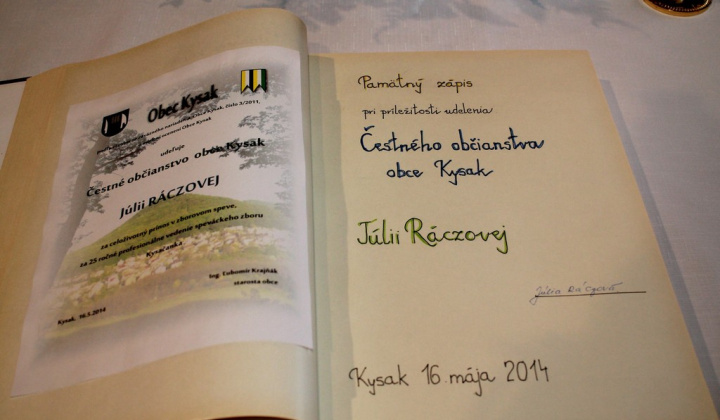 Obec Kysak
udeľuje
Čestné občianstvo obce Kysak
Júlii RÁCZOVEJ
za celoživotný prínos v zborovom speve,
za 25 ročné profesionálne vedenie speváckeho zboru
Kysačanka
Ing. Ľubomír Krajňák
starosta obce
Kysak, 16.5.2014
Pamätný zápis
pri príležitosti udelenia
Čestného občianstva
obce Kysak
Júlii Ráczovej
Júlia Ráczová
Kysak 16. mája 2014